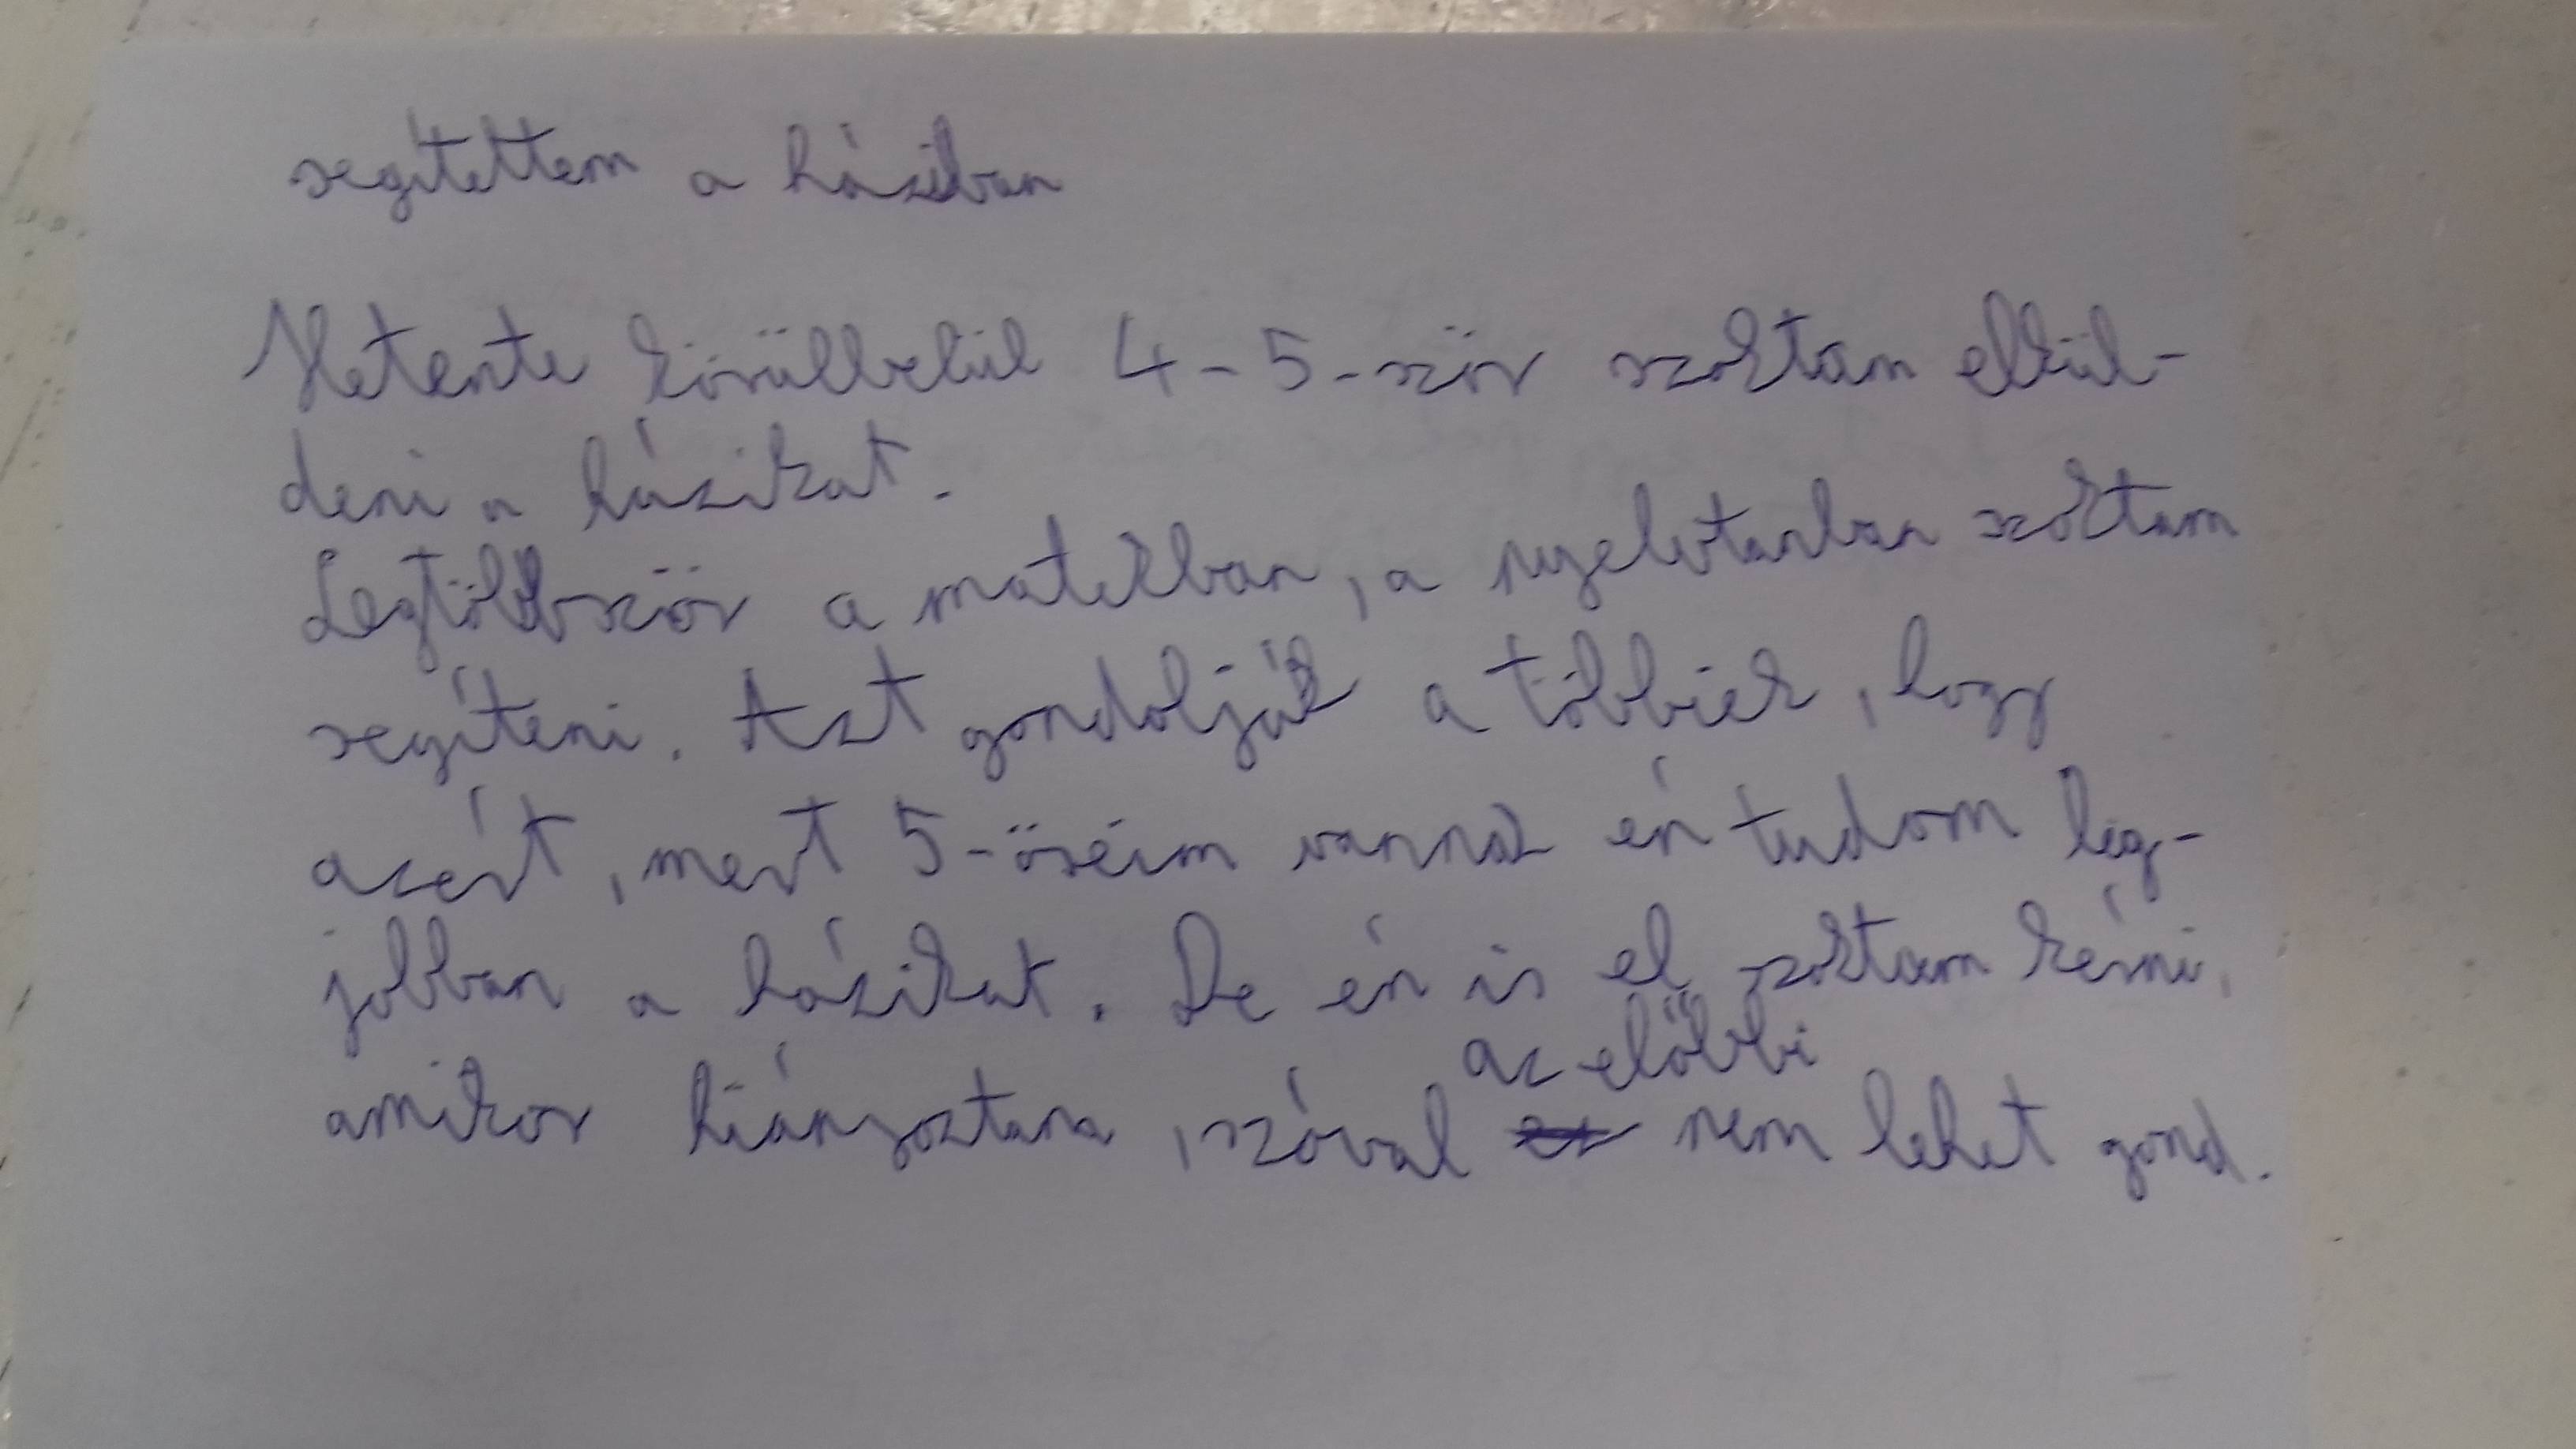 segítettem a háziban
Hetente körülbelül 4-5-ször szoktam elkül-
deni a házikat.
Legtöbbször a matekban, a nyelvtanban szoktam
segíteni. Azt gondolják a többiek, hogy
azért, mert 5-öseim vannak én tudom leg-
jobban a házikat. De én is el szoktam kérni,
az előbbi
amikor hiányoztam, szóval nem lehet gond.